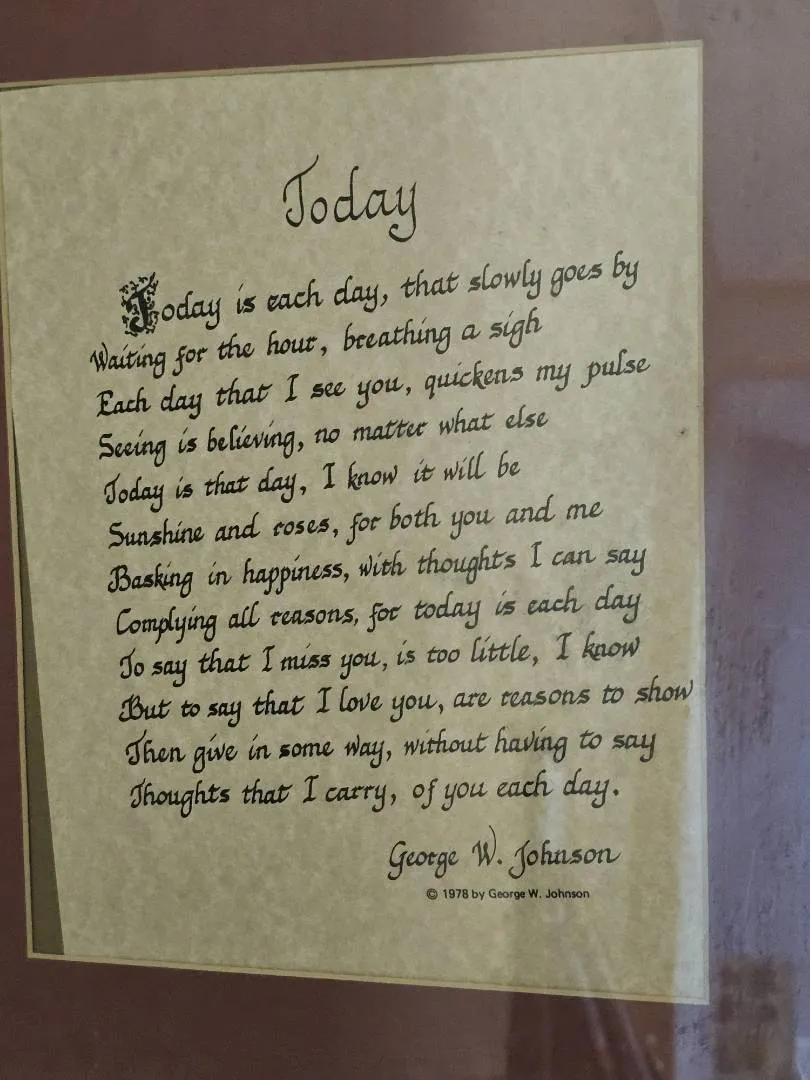 Today
Today is each day, that slowly goes by
Waiting for the hour, breathing a sigh
Each day that I see you, quickens my pulse
Seeing is believing, no matter what else
Today is that day, I know it will be
Sunshine and roses, for both you and me
Basking in happiness, with thoughts I can say
Complying all reasons, for today is each day
To say that I miss you, is too little, I know
But to say that I love you, are reasons to show
Then give in some way, without having to say
Thoughts that I carry, of you each day.
George W. Johnson
© 1978 by George W. Johnson